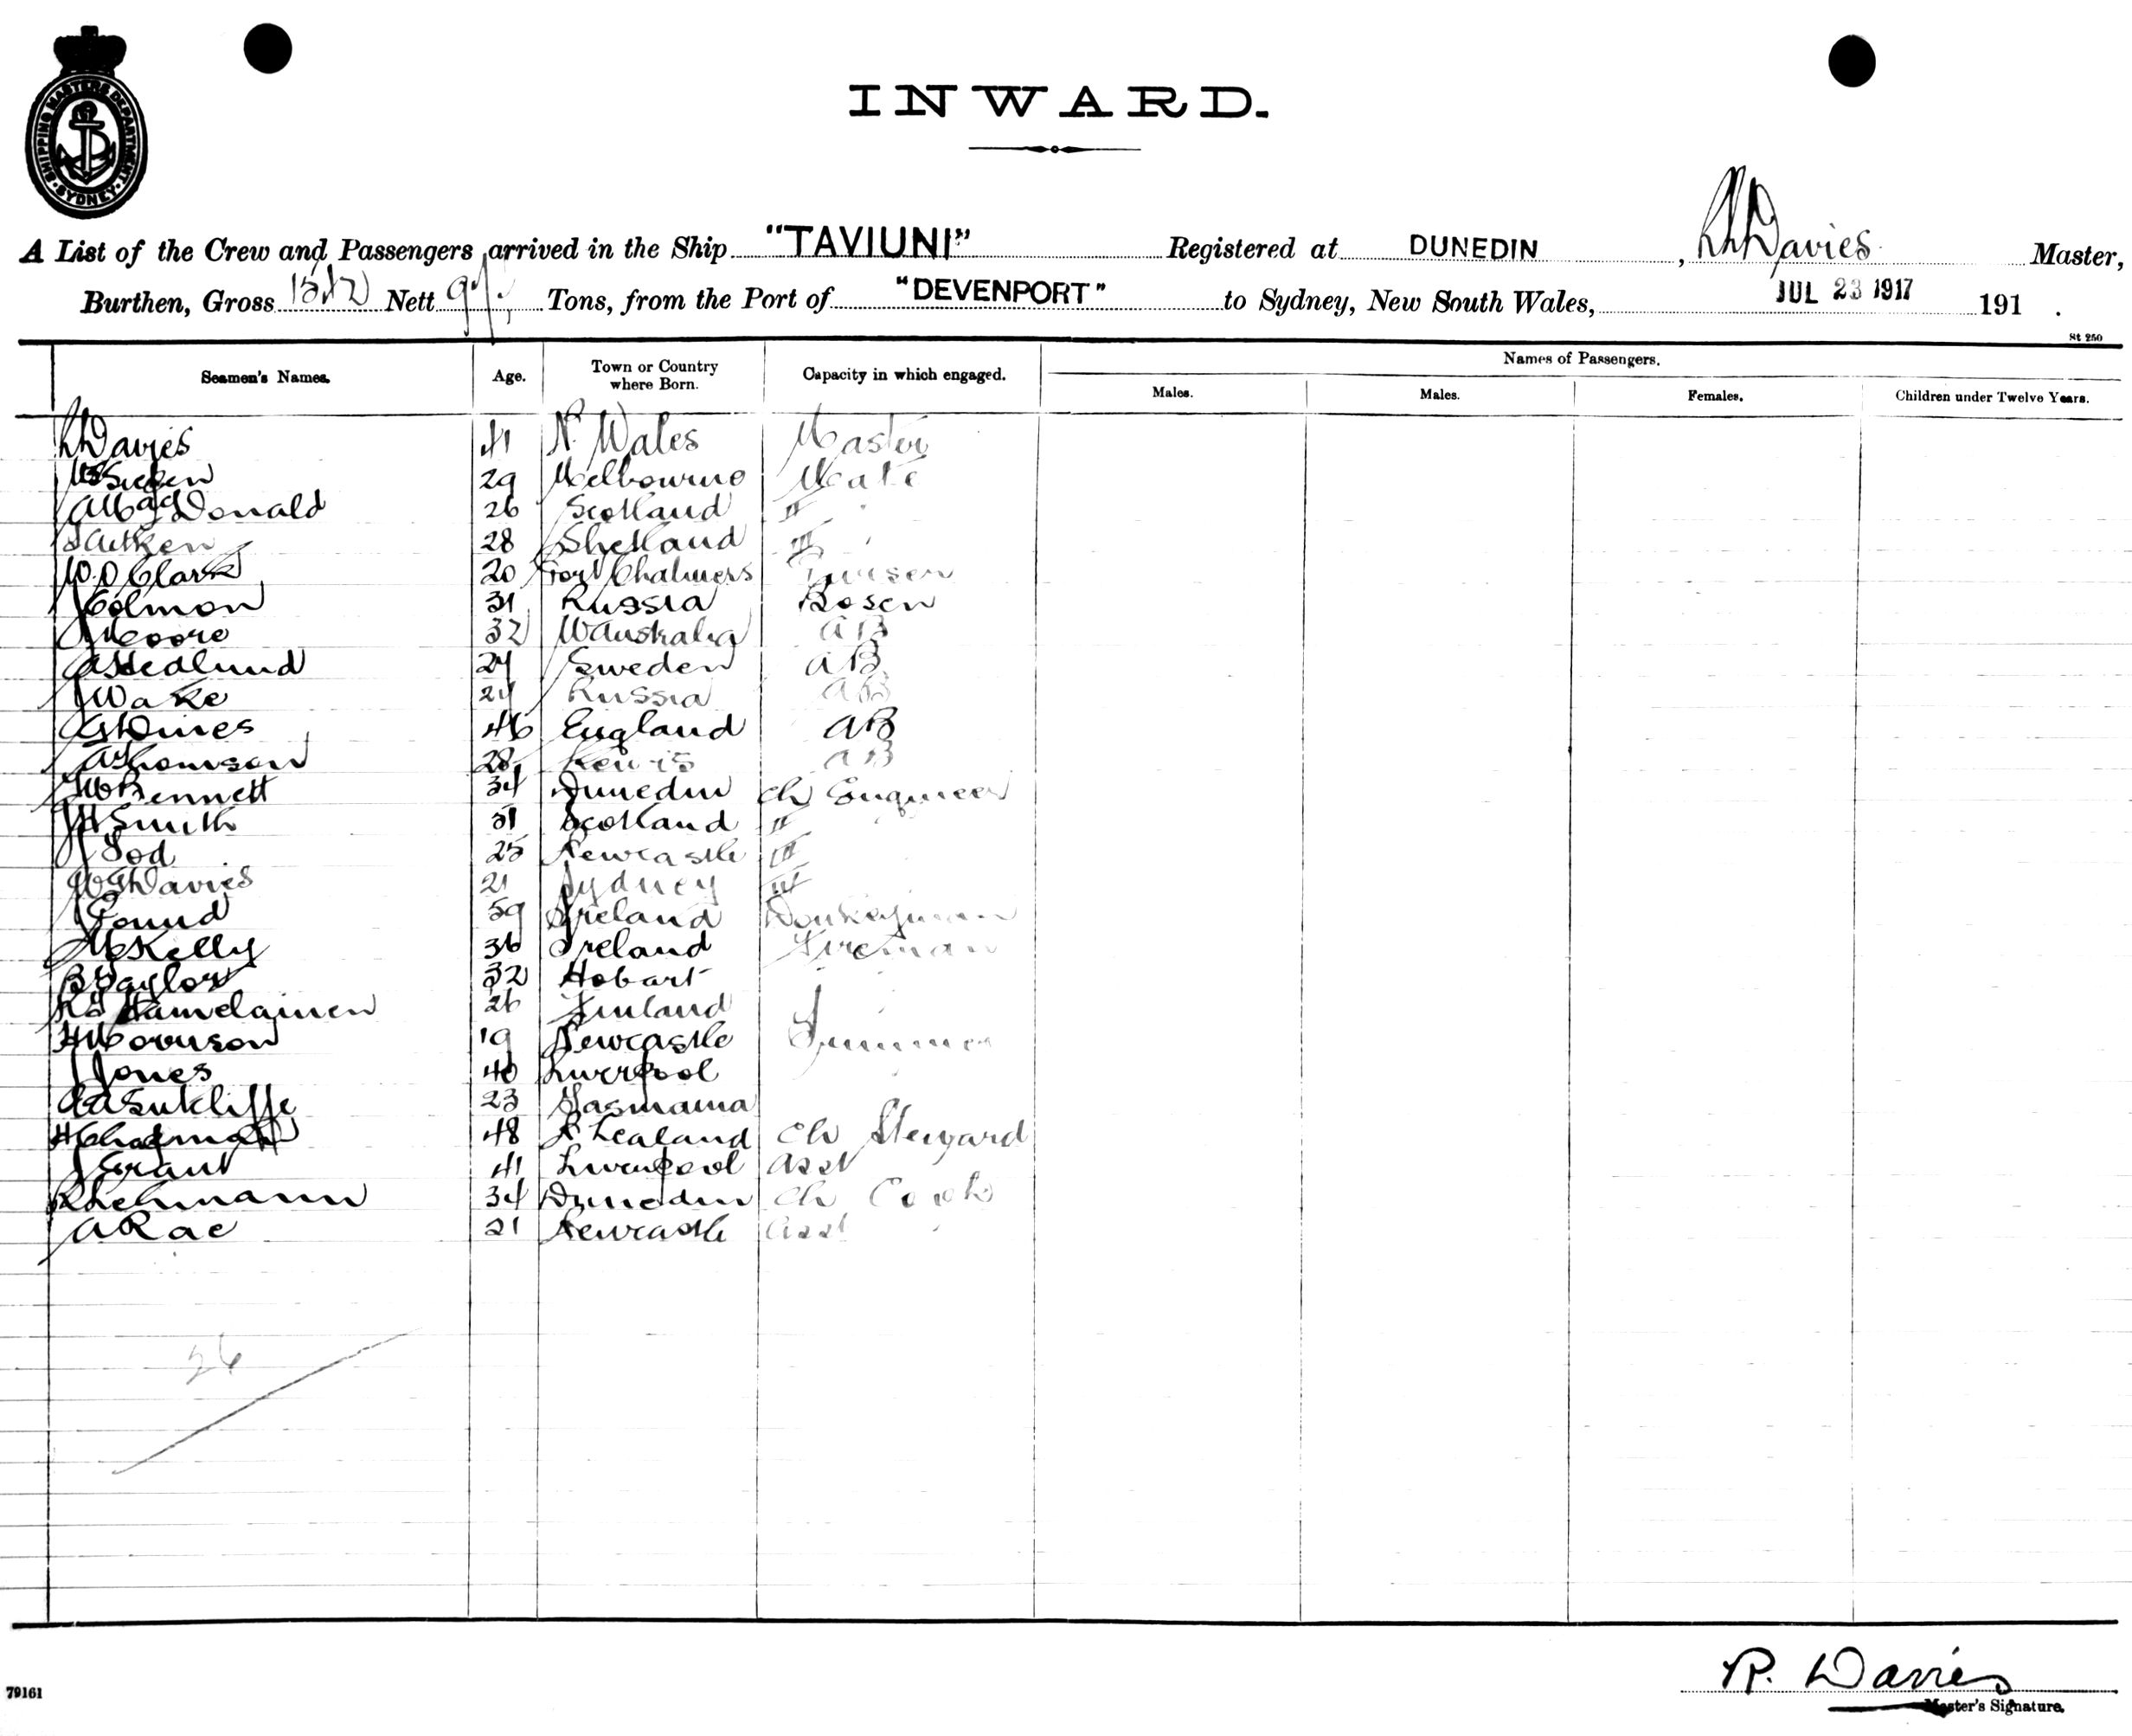 SHIPPING MASTERS DEPARTMENT · SYDNEY ·
INWARD.
A List of the Crew and Passengers arrived in the Ship "TAVIUNI" Registered at DUNEDIN, Davies Master,
Burthen, Gross Nett Tons, from the Port of "DEVENPORT" to Sydney, New South Wales, JUL 23 1917 191 .
St 250
Seamen's Names. Age. Town or Country where Born. Capacity in which engaged. Names of Passengers.
Males. Males. Females. Children under Twelve Years.
R Davies 41 N. Wales Master
29 Melbourne Mate
A MacDonald 26 Scotland II
Aitken 28 Shetland III
W.D Clark 20 Port Chalmers
J Colmon 31 Russia Bosen
J Moore 32 W Australia AB
A Hedlund 24 Sweden AB
J Wake 24 Russia AB
46 England AB
A Thomson 28 AB
Bennett 34 Dunedin Ch Engineer
J H Smith 31 Scotland II
25 Newcastle III
Davies 21 Sydney
J Pound 59 Ireland Donkeyman
M Kelly 36 Ireland Fireman
B Taylor 32 Hobart
Hamelainen 26 Finland
H Morrison 19 Newcastle Trimmer
J Jones 40 Liverpool
Sutkliffe 23 Tasmania
H Chapman 48 N Zealand Ch Steward
J Grant 41 Liverpool Asst
R Lehmann 34 Dunedin Ch Cook
A Rae 21 Newcastle Asst
26
R. Davies
Master's Signature.
79161